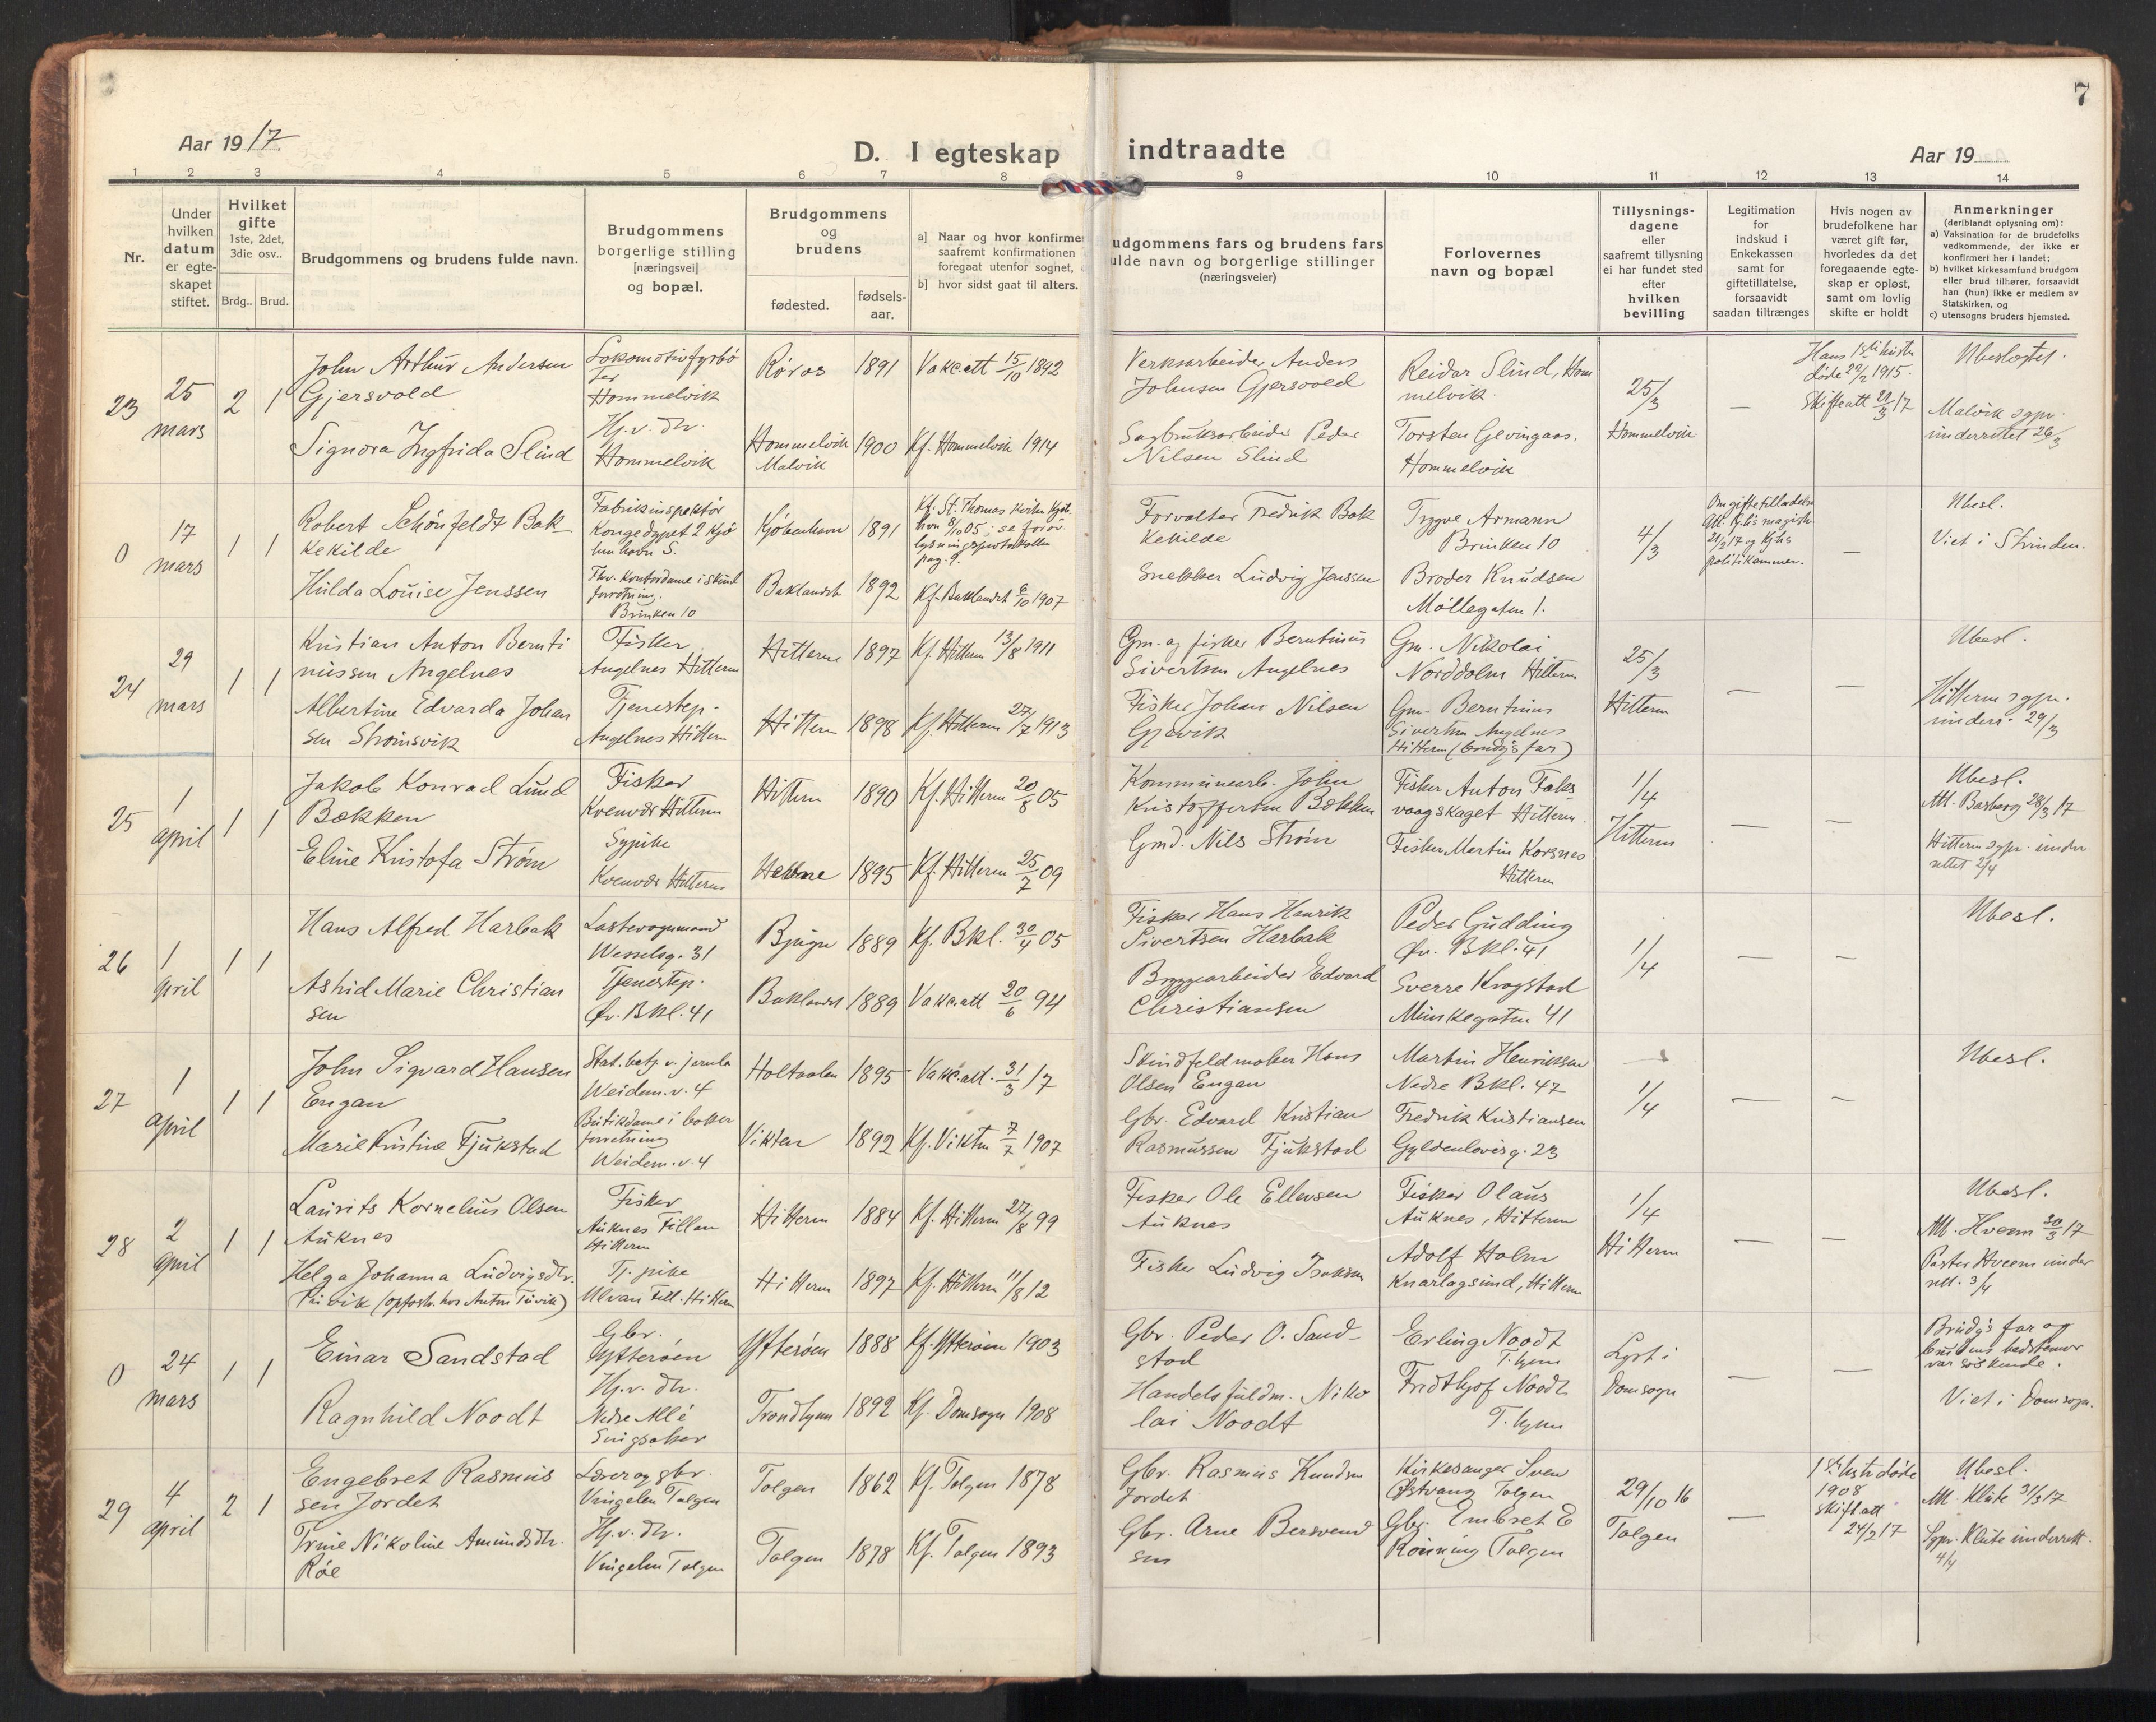 7
Aar 1917.
D. I egteskap indtraadte
Aar 19
1 2 3 4 5 6 7 8 9 10 11 12 13 14
Nr.
Under hvilken datum er egteskapet stiftet.
Hvilket gifte
1ste, 2det, 3die osv..
Brdg.. Brud.
Brudgommens og brudens fulde navn.
Brudgommens borgerlige stilling
[næringsvei]
og bopæl.
Brudgommens og brudens
fødested.
fødsels-aar.
a] Naar og hvor konfirme
saafremt konfirmationen
foregaat utenfor sognet,
b] hvor sidst gaat til alters.
udgommens fars og brudens fars
ulde navn og borgerlige stillinger
(næringsveier)
Forlovernes
navn og bopæl
Tillysnings-
dagene
eller
saafremt tillysning
ei har fundet sted
efter
hvilken
bevilling
Legitimation
for
indskud i
Enkekassen
samt for
giftetillatelse,
forsaavidt
saadan tiltrænges
Hvis nogen av
brudefolkene har
været gift før,
hvorledes da det
foregaaende egte-
skap er opløst,
samt om lovlig
skifte er holdt
Anmerkninger
(deriblandt oplysning om):
a) Vaksination for de brudefolks
vedkommende, der ikke er
konfirmert her i landet;
b) hvilket kirkesamfund brudgom
eller brud tilhører, forsaavidt
han (hun) ikke er medlem av
Statskirken, og
c) utensogns bruders hjemsted.
23
25 mars
2 1
John Arthur Andersen
Gjersvold
Lokomotivfyrbø
ter
Hommelvik
Røros 1891 Vakc att 15/10 1892
Verksarbeider Anders
Johnsen Gjersvold
Reidar Slind, Hom
melvik.
25/3
Hommelvik
—
Hans 1ste hustru
døde 22/2 1915.
Skifteatt 21/3 17
Ubeslegtet.
Malvik sgpr.
underrettet 26/3
Signora Ingfrida Slind
Hj.v. dtr.
Hommelvik
Hommelvik
Malvik
1900 Kf. Hommelvik 1914
Sagbruksarbeider Peder
Nilsen Slind
Torsten Gevingaas.
Hommelvik
0
17 mars
1 1
Robert Schönfeldt Bak
kekilde
Fabrikinspektør
Kongedypet 2 Kjø
benhavn S.
Kjøbenhavn 1891
Kf. St. Thomas kirken Kjøb.
havn 8/10 05; se forøv.
lysningsprotokollen
pag. 9.
Forvalter Fredrik Bak
kekilde
Trygve Armann
Brinken 10
4/3
Om giftetilladelse
Att. Kjbhs magistr.
21/2 17 og Kjbhs
politikammer.
—
Ubesl.
Viet i Strinden.
Hulda Louise Jenssen
Fhv. Kontordame i skind
forretning.
Brinken 10
Baklandet 1892 Kf. Baklandet 6/10 1907
Snekker Ludvig Jenssen
Broder Knudsen
Møllegaten 1.
24
29 mars
1 1
Kristian Anton Bernti
nussen Angelnes
Fisker
Angelnes Hitteren
Hitteren 1897 Kf. Hitteren 13/8 1911
Gm. og fisker Berntinus
Sivertsen Angelnes
Gm. Nikolai
Norddolm Hitteren
25/3
Hitteren
— —
Ubesl.
Hitteren sgpr.
underr. 29/3
Albertine Edvarda Johan
sen Strømsvik
Tjenestep.
Angelnes Hitteren
Hitteren 1898 Kf. Hitteren 27/7 1913
Fisker Johan Nilsen
Gjøvik
Gm. Berntinus
Sivertsen Angelnes
Hitteren (brudg's far)
25
1 april
1 1
Jakob Konrad Lund
Bækken
Fisker
Kvenvær Hitteren
Hitteren 1890 Kf. Hitteren 20/8 05
Kommunearb. John
Kristoffersen Bækken
Fisker Anton Faks
vaagskaget Hitteren.
1/4
Hitteren
— —
Ubesl.
Att. Basberg 28/3 17
Hitteren sgpr. under
rettet 2/4
Eline Kristofa Strøm
Sypike
Kvenvær Hitteren
Hevne 1895 Kf. Hitteren 25/7 09
Gmd. Nils Strøm
Fisker Martin Korsnes
Hitteren
26
1 april
1 1
Hans Alfred Harbak
Lastevognmand
Wesselsg. 31
Bjugn 1889 Kf. Bkl. 30/4 05
Fisker Hans Henrik
Sivertsen Harbak
Peder Gudding
Øv. Bkl. 41
1/4
— —
Ubesl.
Astrid Marie Christian
sen
Tjenestep.
Øv. Bkl. 41
Baklandet 1889 Vakc. att 20/6 94
Bryggearbeider Edvard
Christiansen
Sverre Krogstad
Munkegaten 41
27
1 april
1 1
John Sigvard Hansen
Engan
Stat. betj. v. jernba
Weidem. v. 4
Holtaalen 1895 Vakc. att. 31/3 17
Skindfeldmaker Hans
Olsen Engan
Martin Henriksen
Nedre Bkl. 47
1/4
— —
Ubesl.
Marie Kristine Fjukstad
Butikdame i baker
forretning
Weidem. v. 4
Vikten 1892 Kf. Vikten 7/7 1907
Gbr. Edvard Kristian
Rasmussen Fjukstad
Fredrik Kristiansen
Gyldenløvesg. 23
28
2 april
1 1
Laurits Kornelius Olsen
Auknes
Fisker
Auknes Fillan
Hitteren
Hitteren 1884 Kf. Hitteren 27/8 99
Fisker Ole Ellevsen
Auknes
Fisker Olaus
Auknes, Hitteren
1/4
Hitteren
— —
Ubesl.
Att. Hveem 30/3 17
Pastor Hveem under
rett. 3/4
Helga Johanna Ludvigsdtr.
Tuvik (opfostr. hos Anton Tuvik)
Tj. pike
Ulvan Fill. Hitteren
Hitteren 1897 Kf. Hitteren 11/8 12
Fisker Ludvig Isaksen
Adolf Holm
Knarlagsund, Hitteren
0
24 mars
1 1
Einar Sandstad
Gbr.
Ytterøen
Ytterøen 1888 Kf. Ytterøen 1903
Gbr. Peder O. Sand-
stad
Erling Noodt
T.hjem
Lyst i
Domsogn
— —
Brudg's far og
brudens bedstemor
var søskende.
Viet i Domsogn.
Ragnhild Noodt
Hj.v. dtr.
Nedre Allé
Singsaker
Trondhjem 1892 Kf. Domsogn 1908
Handelsfuldm. Niko
lai Noodt
Fridthjof Noodt
T.hjem
29
4 april
2 1
Engebret Rasmus
sen Jordet
Lærer og gbr.
Vingelen Tolgen
Tolgen 1862 Kf. Tolgen 1878
Gbr. Rasmus Knudsen
Jordet
Kirkesanger Sven
Østvang Tolgen
29/10 16
Tolgen
—
1ste hustr. døde
1908
skifteatt
24/2 17
Ubesl.
Att. Klüte 31/3 17
Sgpr. Klüte underrett.
4/4
Trine Nikoline Amundsdtr.
Røe
Hj.v. dtr.
Vingelen Tolgen
Tolgen 1878 Kf. Tolgen 1893
Gbr. Arne Bersvend
sen
Gbr. Embret E
Rønning Tolgen